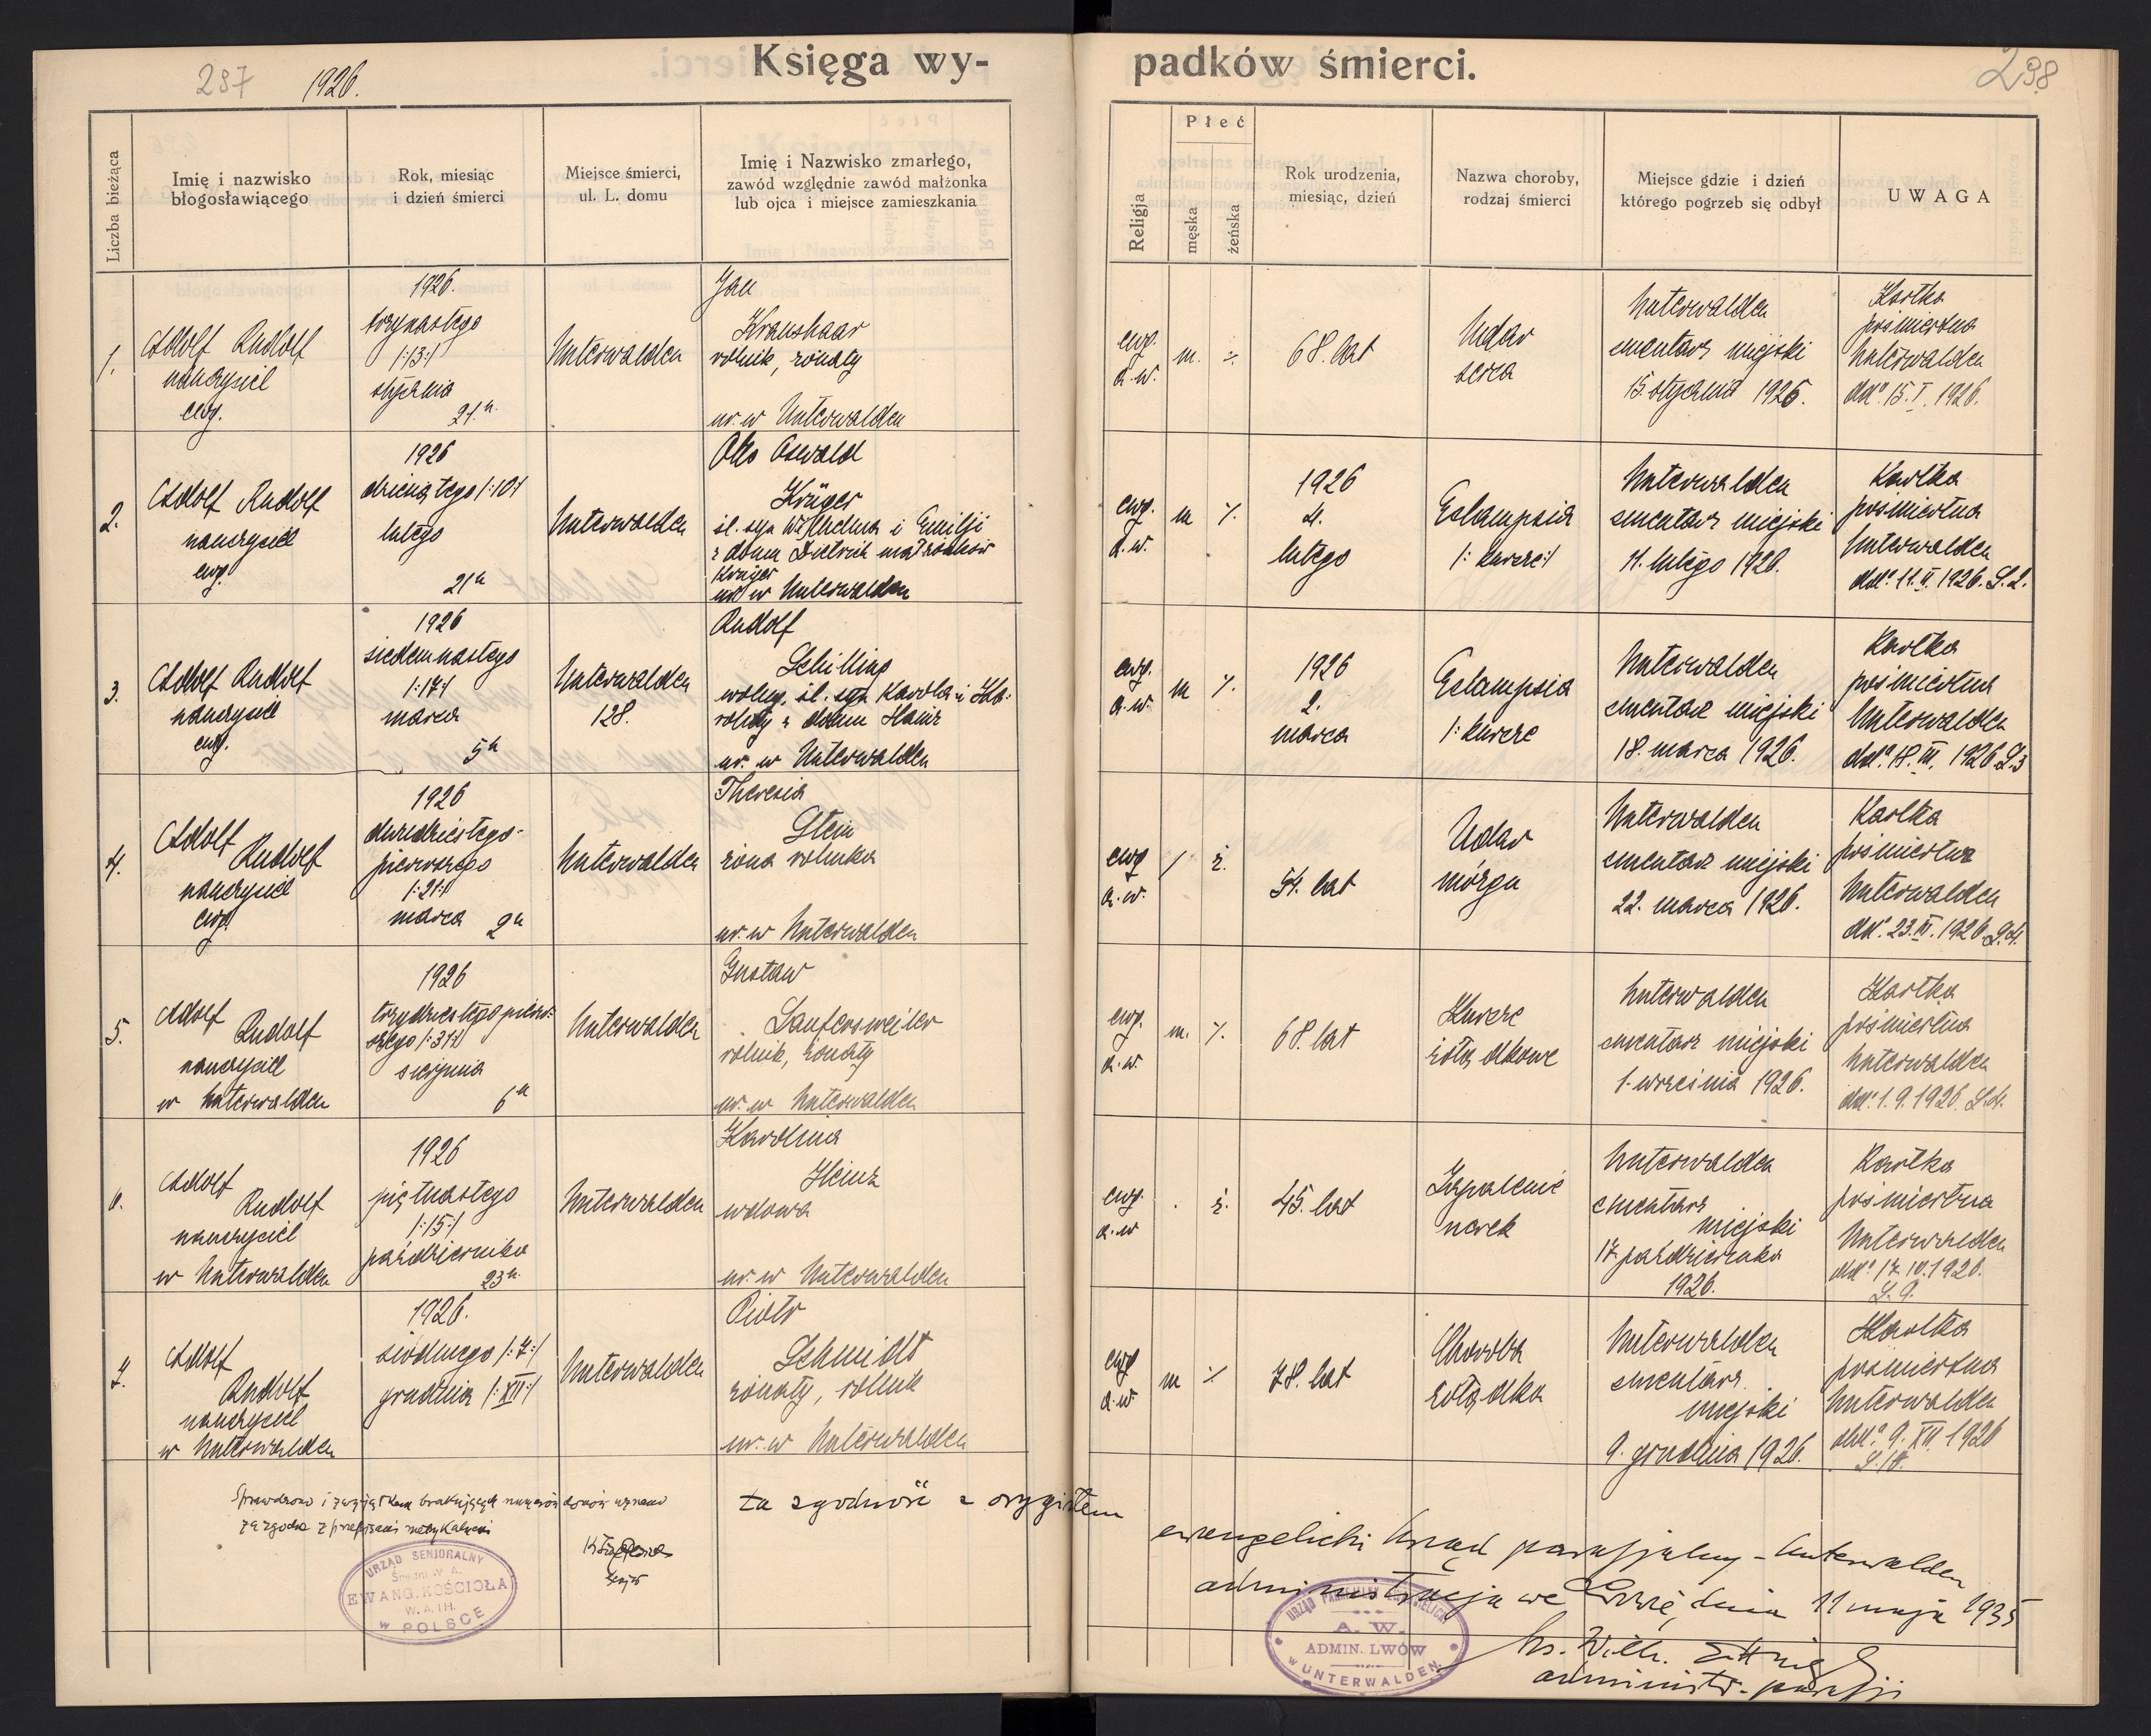 287
1926.
Księga wy-
padków śmierci.
298
Liczba bieżąca
Imię i nazwisko
błogosławiącego
Rok, miesiąc
i dzień śmierci
Miejsce śmierci,
ul. L. domu
Imię i Nazwisko zmarłego,
zawód względnie zawód małżonka
lub ojca i miejsce zamieszkania
Religja
Płeć
męska
żeńska
Rok urodzenia,
miesiąc, dzień
Nazwa choroby,
rodzaj śmierci
Miejsce gdzie i dzień
którego pogrzeb się odbył
UWAGA
1.
Adolf Rudolf
nauczyciel
ewg.
1926.
trzynastego
/:13:/
stycznia
21 h.
Unterwalden
Jan
Kranshaar
rolnik, żonaty
ur. w Unterwalden
ewg.
a. w.
m.
⁒
68. lat
Udar
serca
Unterwalden
cmentarz miejski
15. stycznia 1926.
Kartka
pośmiertna
Unterwalden
ddº. 15. I. 1926.
2.
Adolf Rudolf
nauczyciel
ewg.
1926
dziesiątego /:10:/
lutego
21 h
Unterwalden
Otto Oswald
Krüger
śl. syn Wilhelma i Emilji
z domu Dietrich małżonków
Krüger
ur. w Unterwalden
ewg.
a. w.
m
⁒
1926
4.
lutego
Eclampsia
/: kurcze:/
Unterwalden
cmentarz miejski
11. lutego 1926.
Kartka
pośmiertna
Unterwalden
ddº. 11. II. 1926. L. 2.
3.
Adolf Rudolf
nauczyciel
ewg.
1926
siedemnastego
/:17:/
marca
5 h
Unterwalden
128.
Rudolf
Schilling
wolny, śl. syn Karola i Ka-
roliny z domu Hainz
ur. w Unterwalden
ewg.
a. w.
m
⁒
1926
2.
marca
Eclampsia
/: kurcze
Unterwalden
cmentarz miejski
18. marca 1926.
Kartka
pośmiertna
Unterwalden
ddº. 18. III. 1926. L. 3
4.
Adolf
Rudolf
nauczyciel
ewg.
1926
dwudziestego-
pierwszego
/:21:/
marca 2 h
Unterwalden
Theresia
Stein
żona rolnika
ur. w Unterwalden
ewg
a. w.
/
ż.
54. lat
Udar
mózgu
Unterwalden
cmentarz miejski
22. marca 1926.
Kartka
pośmiertna
Unterwalden
ddº. 23. III. 1926. L. 4.
5.
Adolf
Rudolf
nauczyciel
w Unterwalden
1926
trzydziestego pierw-
szego /:31:/
sierpnia
6 h
Unterwalden
Gustaw
Laufersweiler
rolnik, żonaty
ur. w Unterwalden
ewg.
a. w.
m.
⁒
68. lat
Kurcze
żołądkowe
Unterwalden
cmentarz miejski
1. września 1926.
Kartka
pośmiertna
Unterwalden
ddº. 1. 9. 1926.
6.
Adolf
Rudolf
nauczyciel
w Unterwalden
1926
piętnastego
/:15:/
października
23 h.
Unterwalden
Karolina
Heinz
wdowa
ur. w Unterwalden
ewg.
a. w
ż.
45. lat
Zapalenie
nerek
Unterwalden
cmentarz
miejski
17. października
1926.
Kartka
pośmiertna
Unterwalden
ddº. 17. 10. 1926.
L. 9.
7.
Adolf
Rudolf
nauczyciel
w Unterwalden
1926.
siódmego /:7:/
grudnia /:XII:/
Unterwalden
Piotr
Schmidt
żonaty, rolnik
ur. w Unterwalden
ewg
a. w
m
⁒
78. lat
Choroba
żołądka
Unterwalden
cmentarz
miejski
9. grudnia 1926.
Kartka
pośmiertna
Unterwalden
ddº. 9. XII. 1926
Sprawdzono i z wyjątkiem brakujących numerów domów uznano
za zgodne z przepisami metrykalnemi
URZĄD SENJORALNY
EWANG. KOŚCIOŁA
W. A. I H.
w POLSCE
za zgodność z orygiałem
ewangelicki Urząd parafjalny - Unterwalden
administracja we Lwowie, dnia 11 maja 1935
A. W.
ADMIN. LWÓW
w UNTERWALDEN
ks. Wilh. Ettinger
administr. parafji